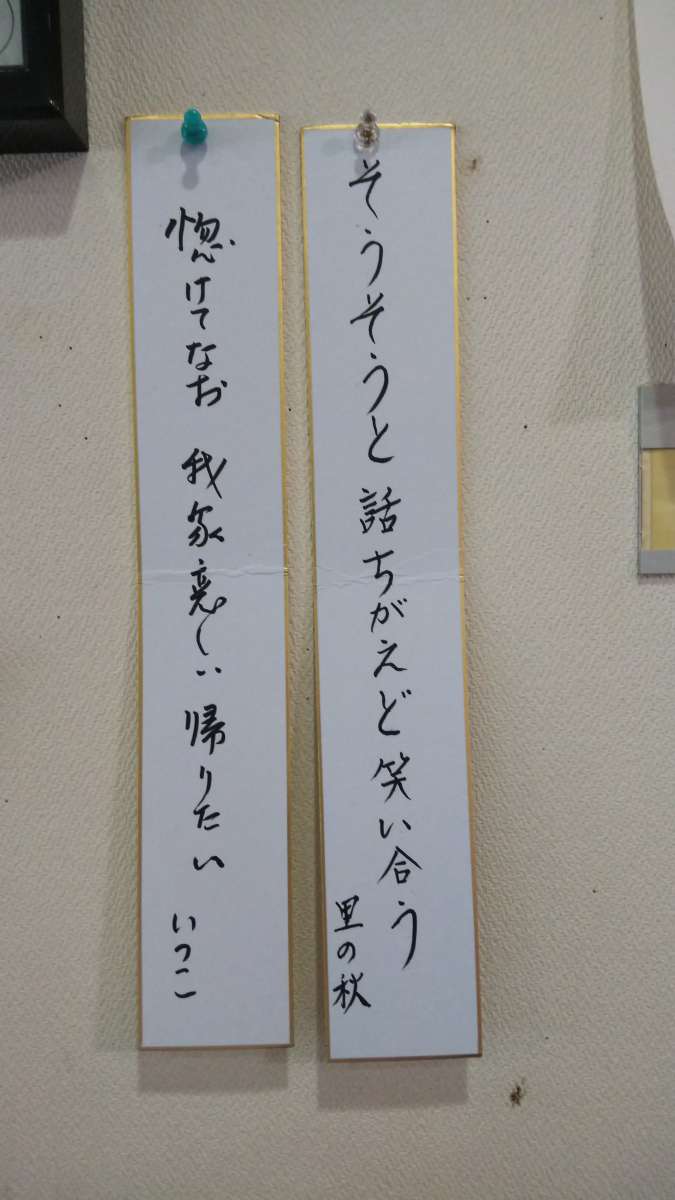 そうそうと 話ちがえど 笑い合う
里の秋
惚けてなお 我家恋しい 帰りたい
いつこ